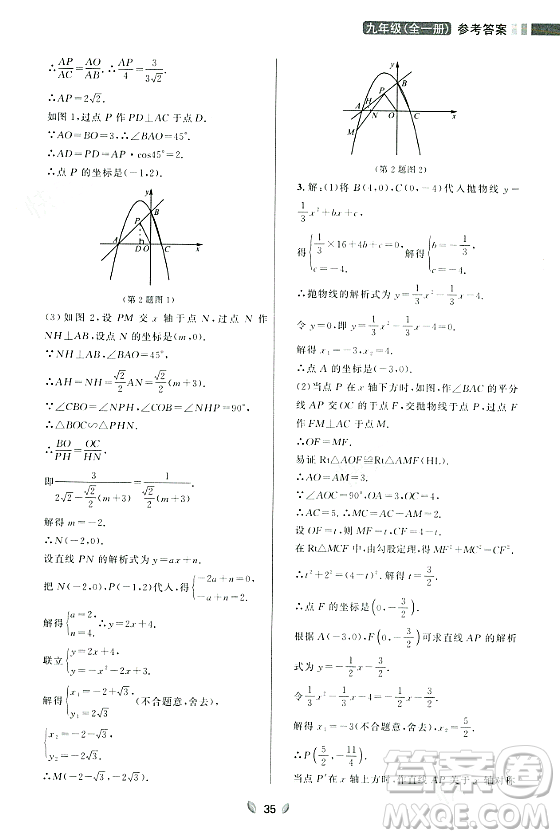 九年级(全一册) 参考答案
∴AP/AC=AO/AB,∴AP/4=3/(3√2).
∴AP=2√2.
如图 1,过点 P 作 PD⊥AC 于点 D.
∵AO=BO=3,∴∠BAO=45°.
∴AD=AP·cos45°=2.
∴点 P 的坐标是(-1,2).
y
B
P
A
D
O
C
x
(第 2 题图 1)
(3)如图 2,设 PM 交 x 轴于点 N,过点 N 作
NH⊥AB,设点 N 的坐标是(m,0).
∵NH⊥AB,∠BAO=45°,
∴AH=NH=√2/2 AN=√2/2(m+3).
∵∠CBO=∠NPH,∠COB=∠PHN=90°,
∴△BOC∽△PHN.
∴BO/PH=OC/HN.
即 3/(2√2-√2/2(m+3))=1/(√2/2(m+3)).
解得 m=-2.
∴N(-2,0).
设直线 PN 的解析式为 y=ax+n.
把 N(-2,0),P(-1,2)代入,得{-2a+n=0, -a+n=2.
解得{a=2, n=4.
∴y=2x+4.
联立{y=2x+4, y=-x²-2x+3.
解得{x₁=-2+√3, y₁=2√3 (不合题意,舍去),
{x₂=-2-√3, y₂=-2√3.
∴M(-2-√3,-2√3).
y
B
P
H
A
N
O
C
x
M
(第 2 题图 2)
3.解:(1)将 B(4,0),C(0,-4)代入抛物线 y=
1/3x²+bx+c,
得{1/3×16+4b+c=0, c=-4. 解得{b=-1/3, c=-4.
∴抛物线的解析式为 y=1/3x²-1/3x-4.
令 y=0,即 1/3x²-1/3x-4=0.
解得 x₁=-3,x₂=4.
∴点 A 的坐标为(-3,0).
(2)当点 P 在 x 轴下方时,如图,作∠BAC 的平分
线 AP 交 OC 于点 F,交抛物线于点 P,过点 F 作
FM⊥AC 于点 M.
∴OF=MF.
易证 Rt△AOF≌Rt△AMF(HL).
∴AO=AM=3.
∵∠AOC=90°,AO=3,OC=4,
∴AC=5.∴MC=2.
设 OF=t,则 MF=t.
在 Rt△MCF 中,由勾股定理,得 MF²+CM²=CF².
∴t²+2²=(4-t)².解得 t=3/2.
∴点 F 的坐标是(0,-3/2).
根据 A(-3,0),F(0,-3/2)可求直线 AP 的解析
式为 y=-1/2x-3/2.
令 -1/2x-3/2=1/3x²-1/3x-4.
解得 x₁=-3(不合题意,舍去),x₂=5/2.
∴P(5/2,-11/4).
当点 P′在 x 轴上方时,作直线 AP 关于 x 轴对称
35